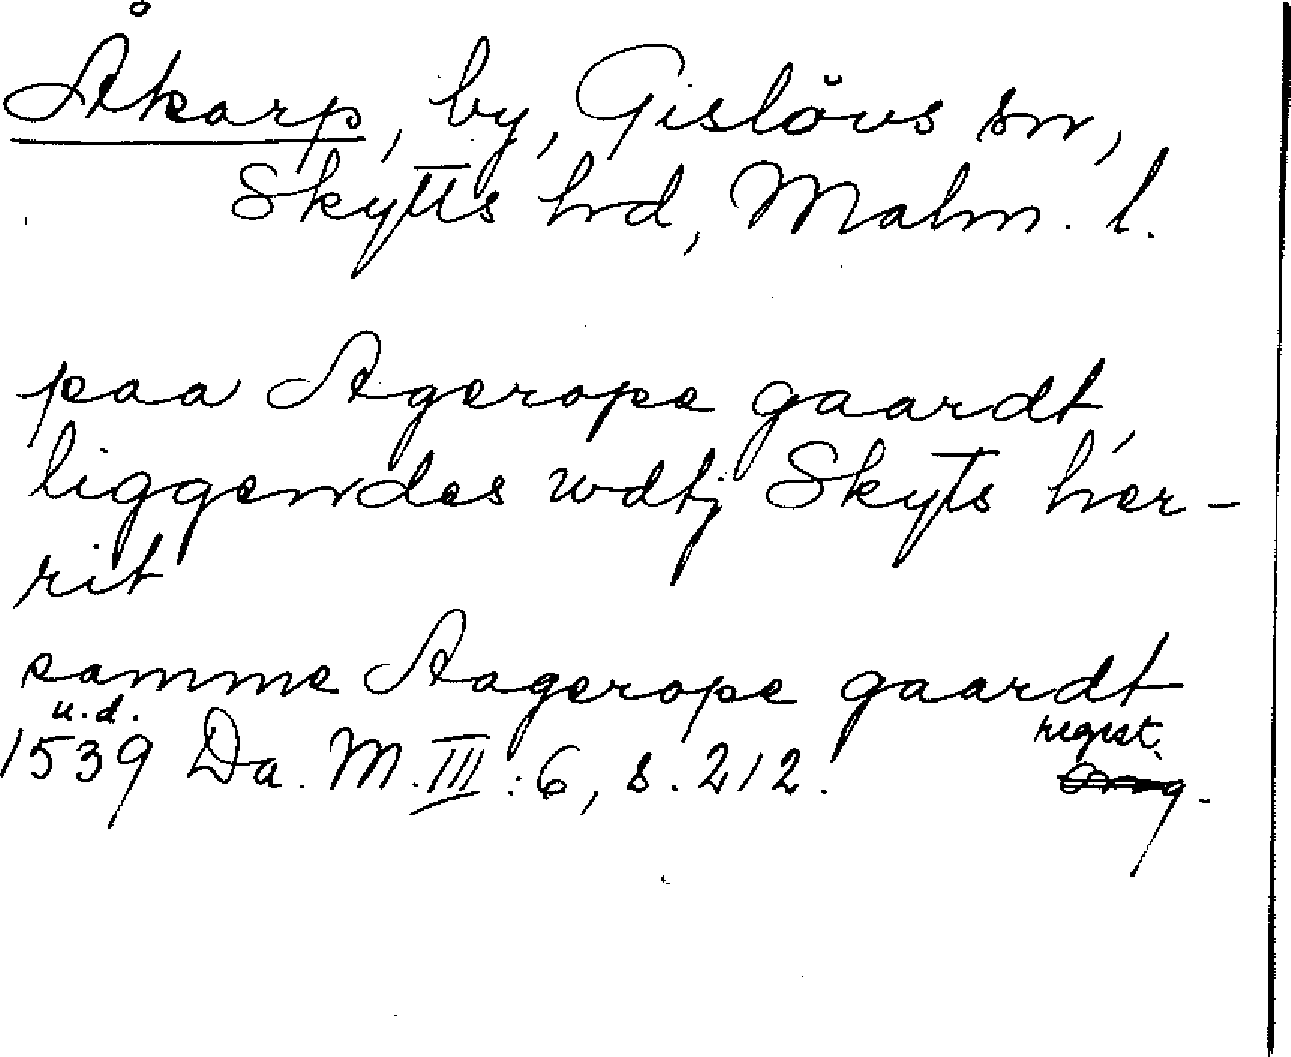 Åkarp, by, Gislövs sn,
Skytts hd, Malm. l.
paa Agerope gaardt,
liggendes wdtj Skyts her-
rit
samme Aagerope gaardt
u.d. regist.
1539 Da. M. III:6, s. 212.